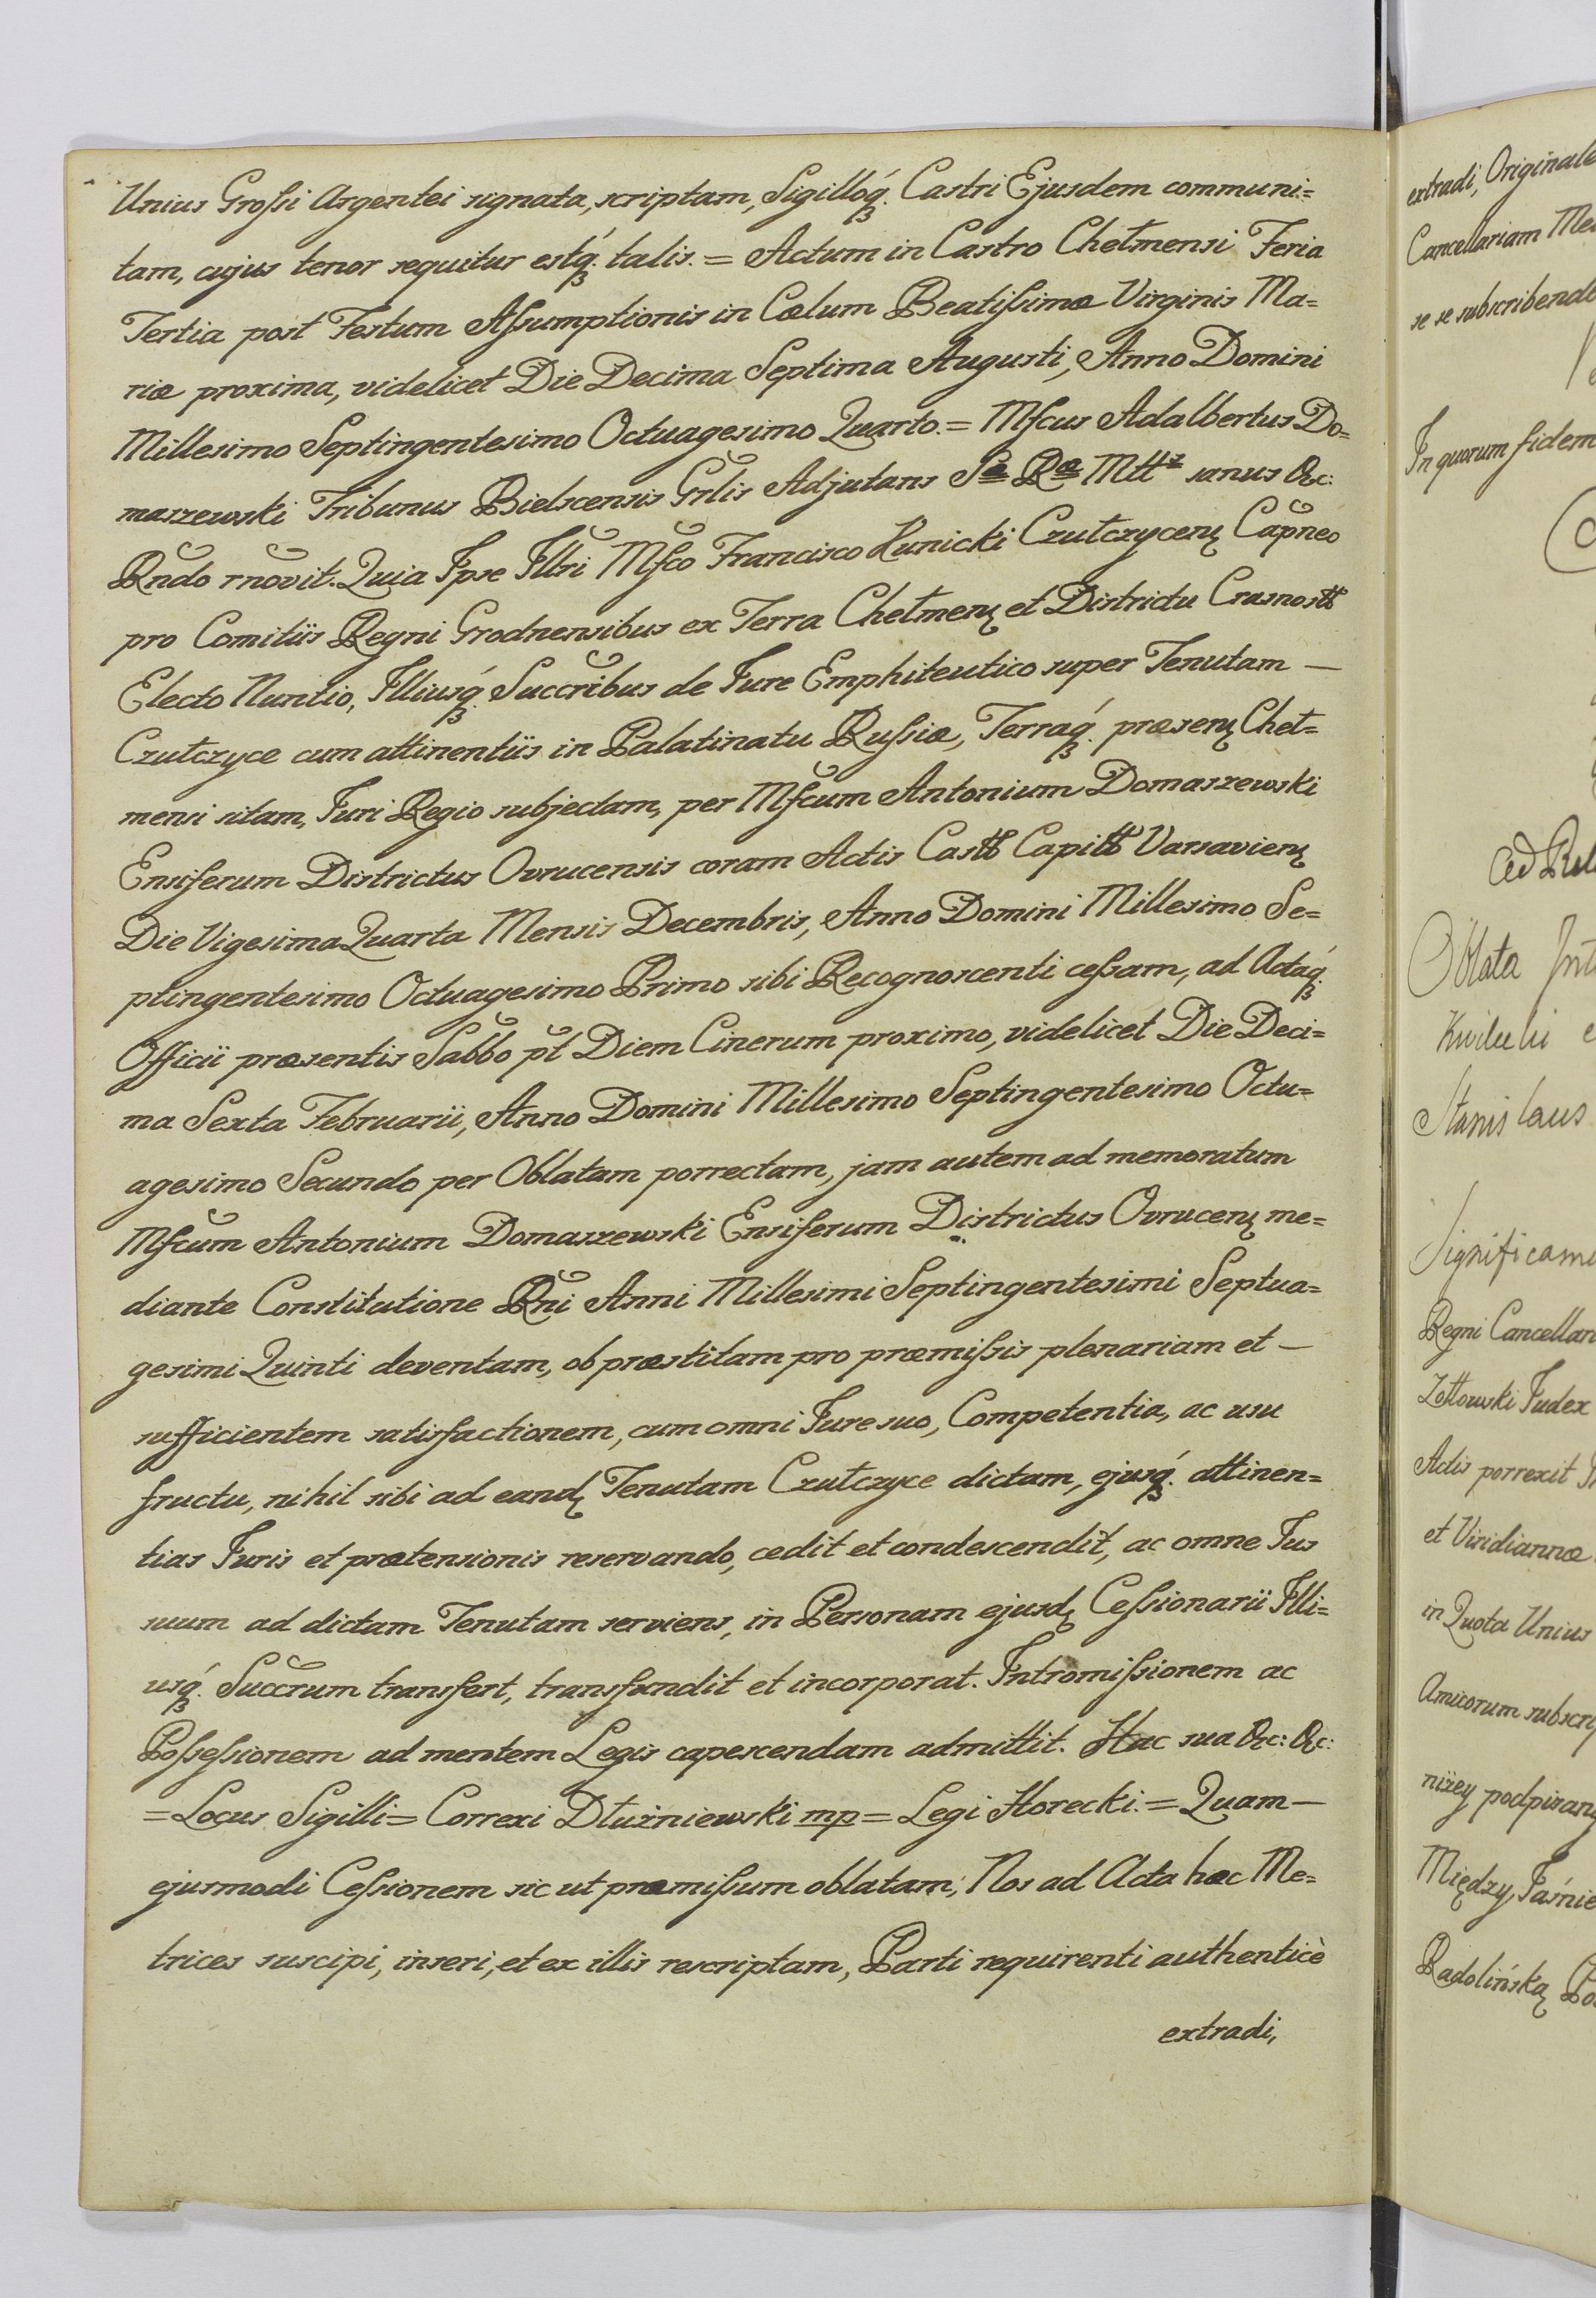 Unius Grossi Argentei signata, scriptam, Sigilloq́ꝫ. Castri Ejusdem communi=
tam, cujus tenor sequitur estq́ꝫ. talis. = Actum in Castro Chełmensi Feria
Tertia post Festum Assumptionis in Cœlum Beatissimæ Virginis Ma=
riæ proxima, videlicet Die Decima Septima Augusti, Anno Domini
Millesimo Septingentesimo Octuagesimo Quarto. = Mfcus Adalbertus Do=
maszewski Tribunus Bielscensis Gr̃lis Adjutans Sæ Ræ Mttis sanus &c:
Rndo rnovit. Quia Ipse Illri Mfco Francisco Kunicki Czułczycenꝫ Capneo
pro Comitiis Regni Grodnensibus ex Terra Chełmenꝫ et Districtu Crasnostt
Electo Nuntio, Illiusq́ꝫ. Succribus de Jure Emphiteutico super Tenutam —
Czułczyce cum attinentiis in Palatinatu Russiæ, Terraq́ꝫ. præsenꝫ Cheł=
mensi sitam, Juri Regio subjectam, per Mfcum Antonium Domaszewski
Ensiferum Districtus Ovrucensis coram Actis Castt Capitt Varsavienꝫ
Die Vigesima Quarta Mensis Decembris, Anno Domini Millesimo Se=
ptingentesimo Octuagesimo Primo sibi Recognoscenti cessam, ad Actaq́ꝫ.
Officii præsentis Sabbo pt Diem Cinerum proximo, videlicet Die Deci=
ma Sexta Februarii, Anno Domini Millesimo Septingentesimo Octu=
agesimo Secundo per Oblatam porrectam, jam autem ad memoratum
Mfcum Antonium Domaszewski Ensiferum Districtus Ovrucenꝫ me=
diante Constitutione Rni Anni Millesimi Septingentesimi Septua=
gesimi Quinti deventam, ob præstitam pro præmissis plenariam et —
sufficientem satisfactionem, cum omni Jure suo, Competentia, ac usu
fructu, nihil sibi ad eandꝫ Tenutam Czułczyce dictam, ejusq́ꝫ. attinen=
tias Juris et prætensionis reservando, cedit et condescendit, ac omne Jus
suum ad dictam Tenutam serviens, in Personam ejusdꝫ Cessionarii Illi=
usq́ꝫ. Succrum transfert, transfundit et incorporat. Intromissionem ac
Possessionem ad mentem Legis capescendam admittit. Hac sua &c: &c:
= Locus Sigilli = Correxi Dłużniewski mp = Legi Horecki. = Quam —
ejusmodi Cessionem sic ut præmissum oblatam, Nos ad Acta hæc Me=
trices suscipi, inseri, et ex illis rescriptam, Parti requirenti authenticè
extradi,
extradi, Originale
Cancellariam
se se subscribendo
In quorum fidem
Ad
Oblata
Stanislaus
Regni
Judex
Actis porrexit
et Viridiannæ
in Quota Unius
Amicorum
niżey
Między
Radolińską